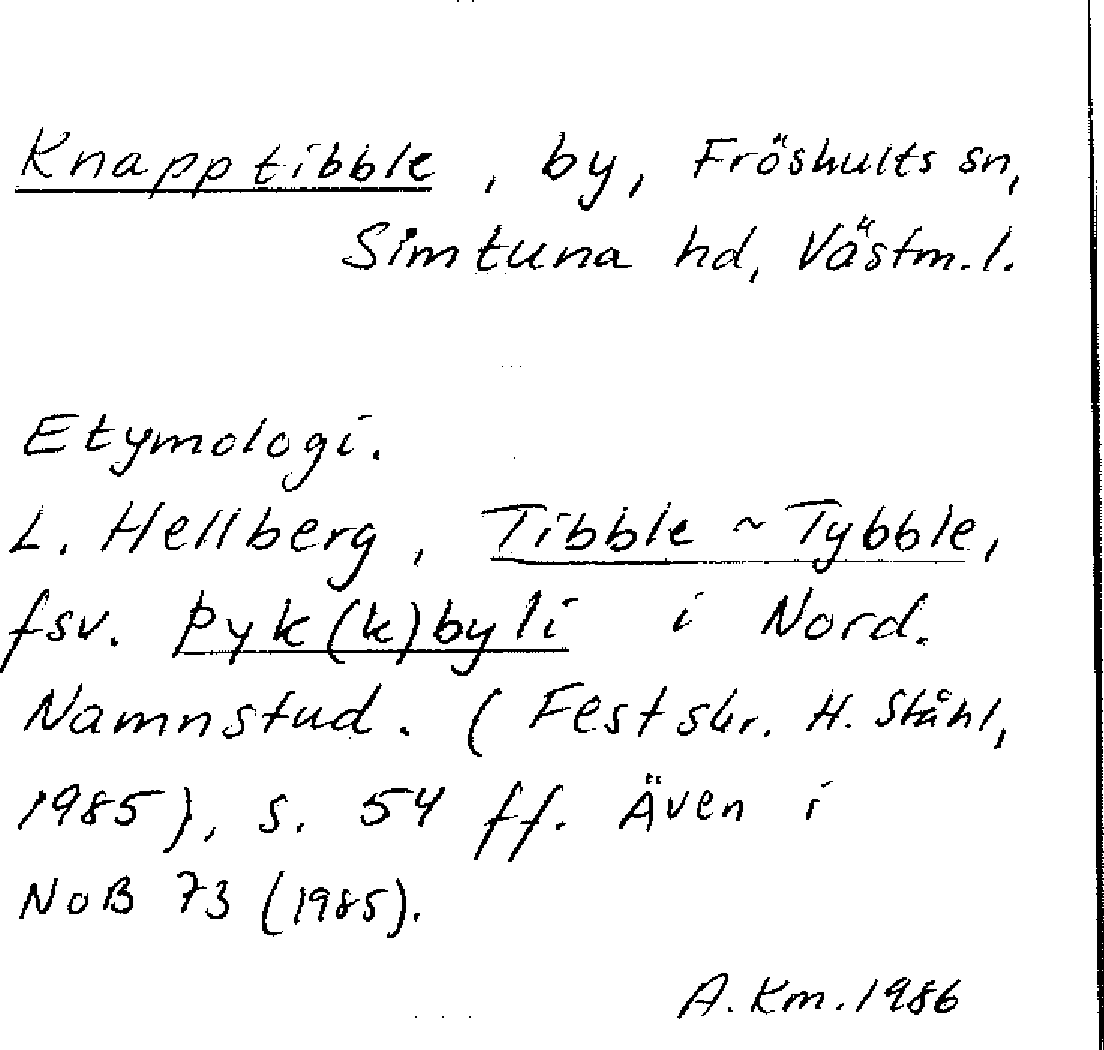 Knapptibble, by, Fröshults sn,
Simtuna hd, Västm.l.
Etymologi.
L. Hellberg, Tibble ~ Tybble,
fsv. þyk(k)byli i Nord.
Namnstud. (Festskr. H. Ståhl,
1985), s. 54 ff. Även i
NoB 73 (1985).
A. Km. 1986